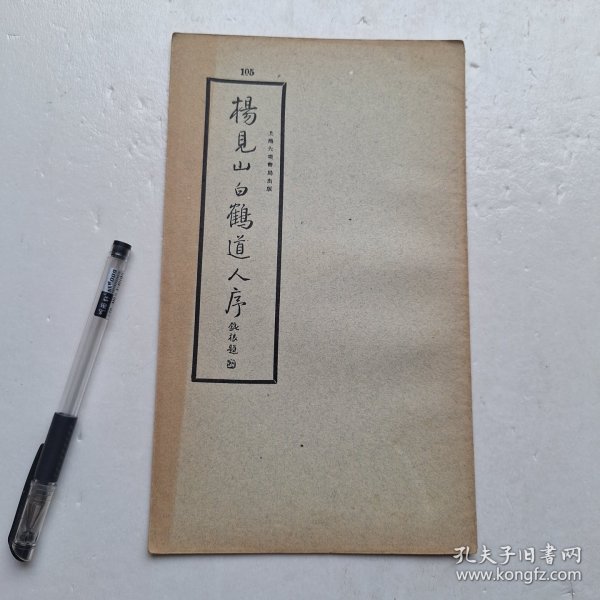 105
楊見山白鶴道人序
上海大衆書局出版
鐵根題
孔夫子旧书网
www.kongfz.com